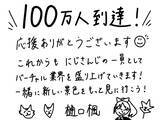 100万人到達!
応援ありがとうございます
これからも にじさんじの一員として
バーチャル業界を盛り上げていきます!
一緒に新しい景色をもっと見に行こう!
樋口楓